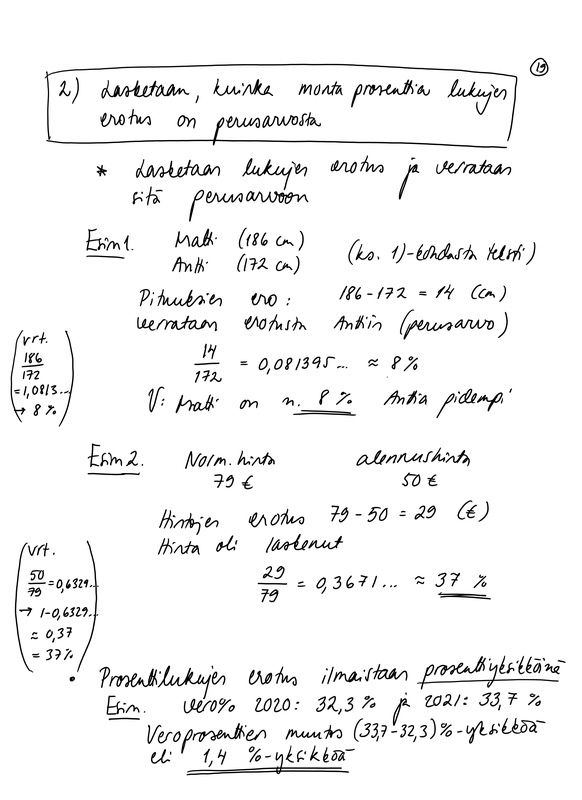 19
2) Lasketaan, kuinka monta prosenttia lukujen
erotus on perusarvosta
* Lasketaan lukujen erotus ja verrataan
sitä perusarvoon
Esim1. Matti (186 cm)
Antti (172 cm)
(ks. 1)-kohdasta teksti)
Pituuksien ero: 186-172 = 14 (cm)
verrataan erotusta Anttiin (perusarvo)
14/172 = 0,081395... ≈ 8 %
V: Matti on n. 8 % Anttia pidempi
(vrt.
186/172
= 1,0813...
→ 8 %)
Esim 2. Norm. hinta alennushinta
79 € 50 €
Hintojen erotus 79-50 = 29 (€)
Hinta oli laskenut
29/79 = 0,3671... ≈ 37 %
(vrt.
50/79 = 0,6329...
→ 1-0,6329...
≈ 0,37
= 37%)
• Prosenttilukujen erotus ilmaistaan prosenttiyksikköinä
Esim. vero% 2020: 32,3 % ja 2021: 33,7 %
Veroprosenttien muutos (33,7-32,3)%-yksikköä
eli 1,4 %-yksikköä